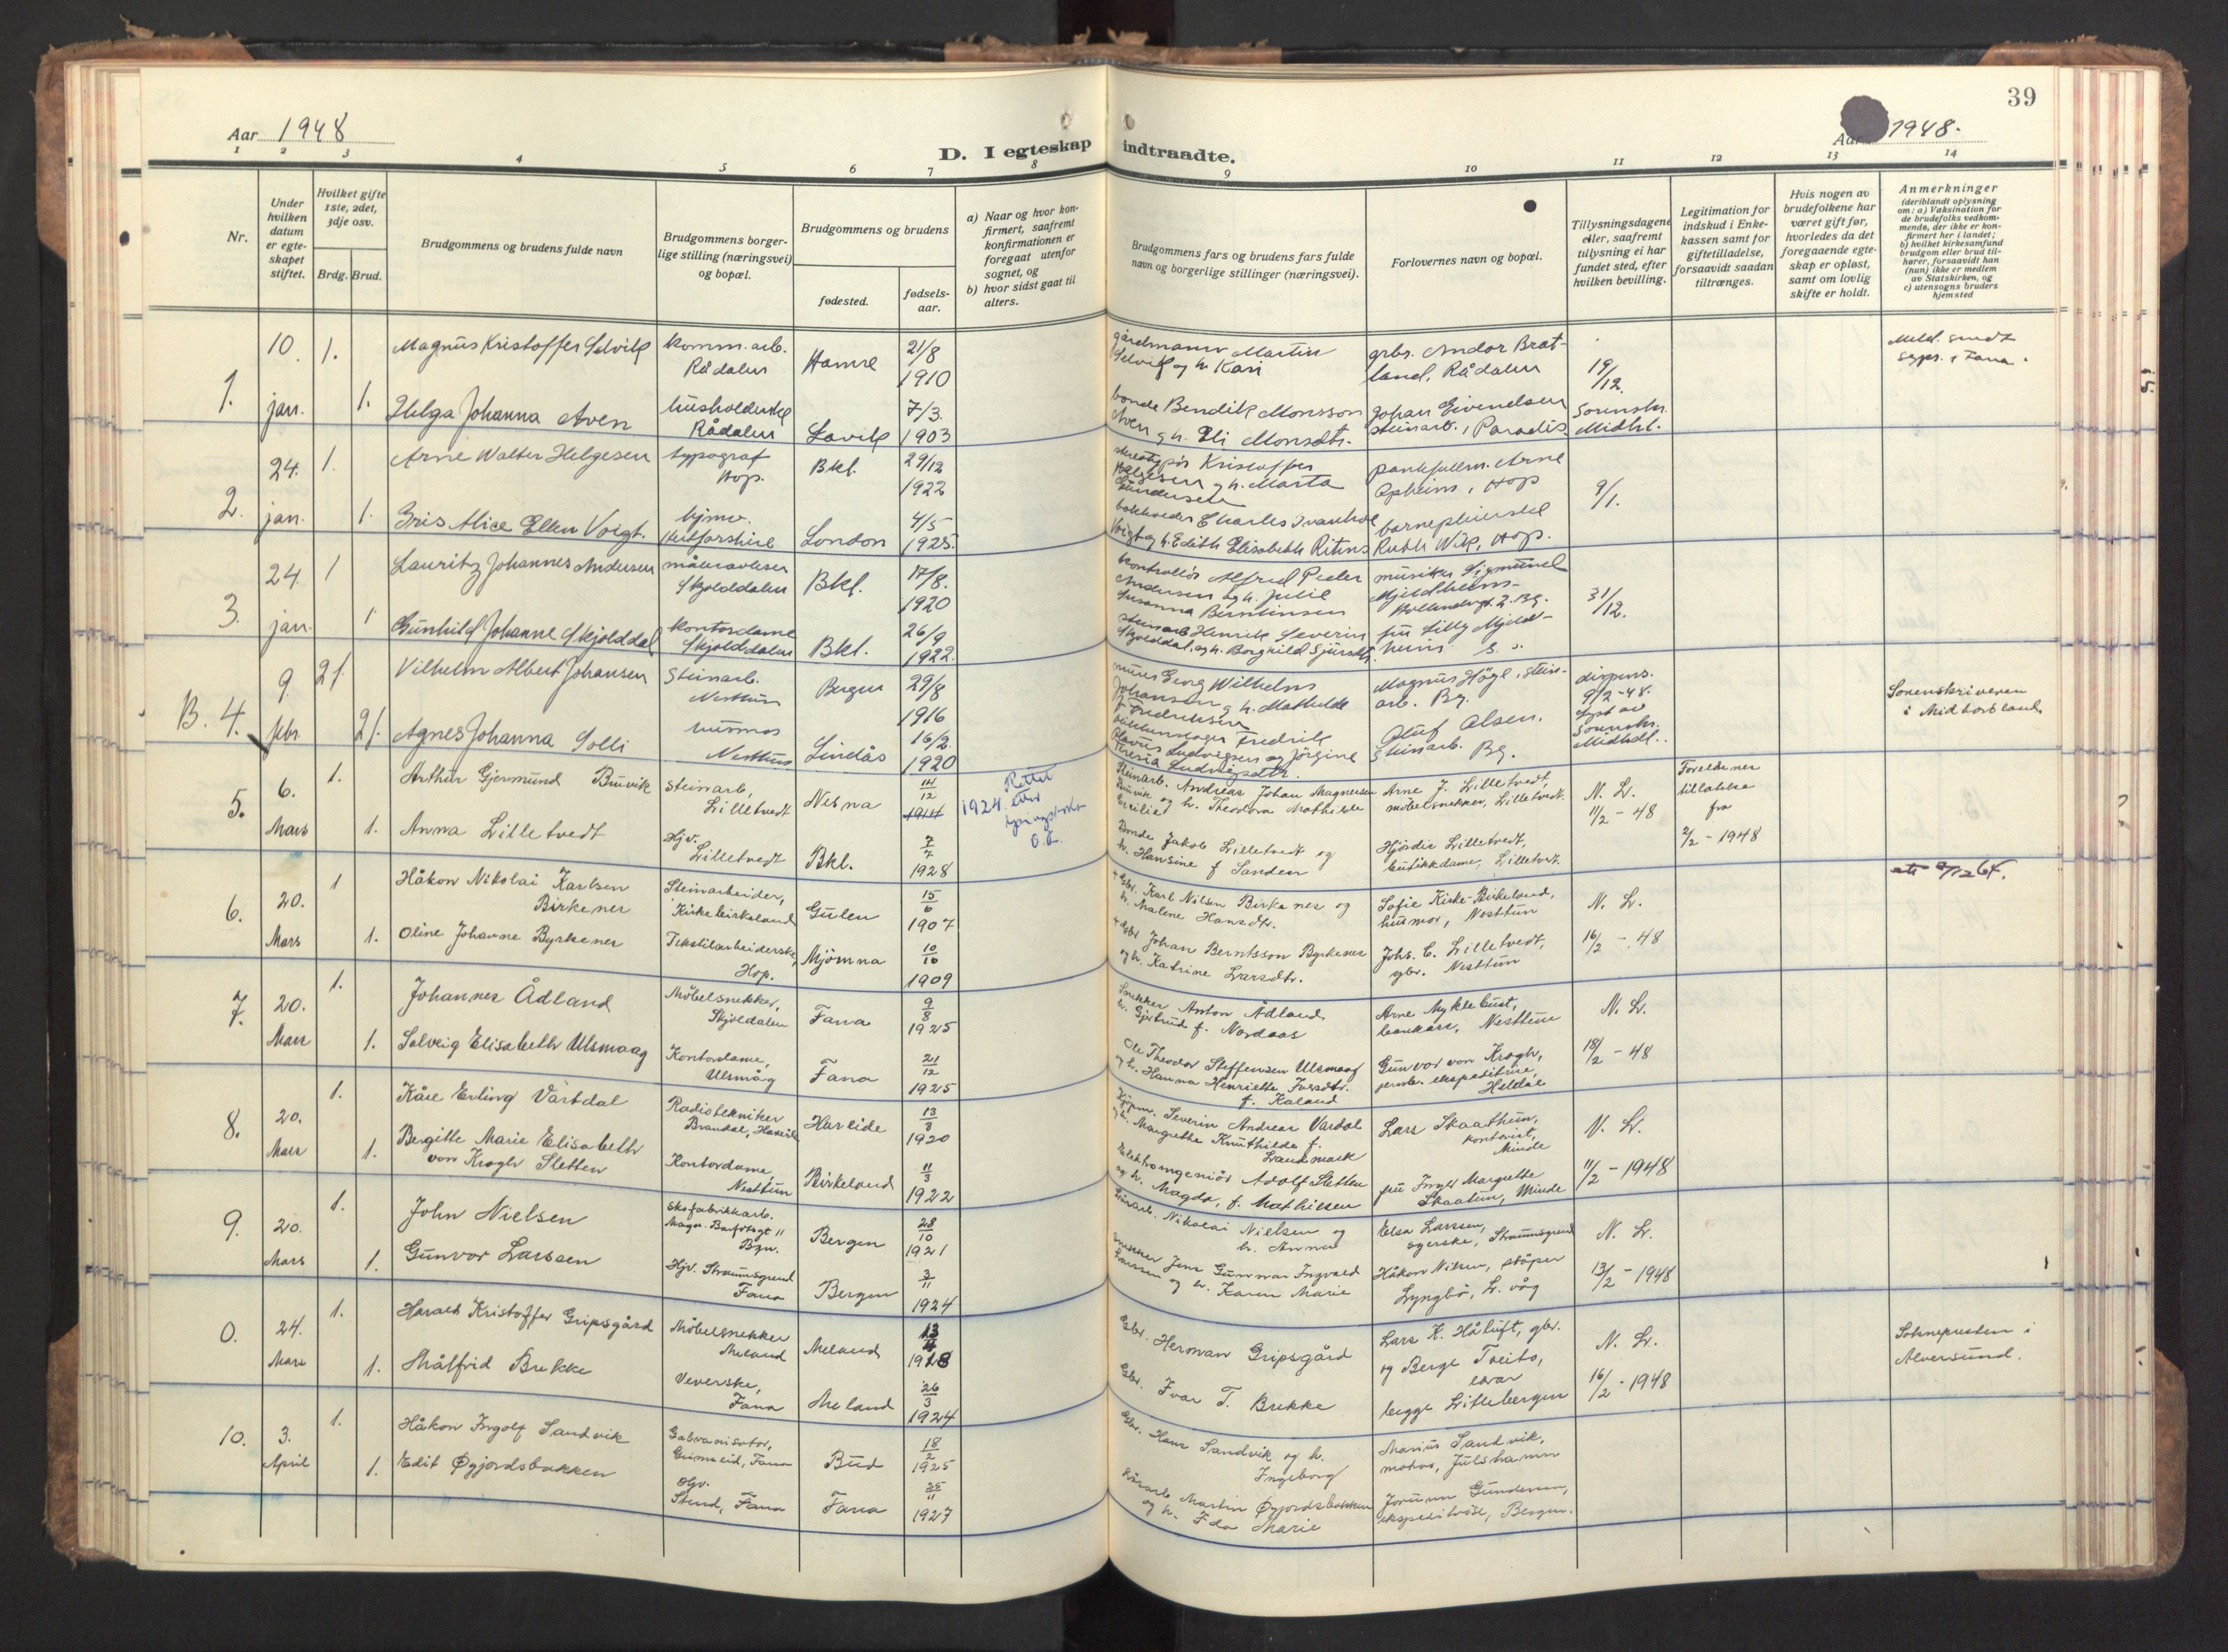 Aar 1948
D. I egteskap
indtraadte.
Aar 1948.
39
1 2 3 4 5 6 7 8 9 10 11 12 13 14
Nr.
Under hvilken datum er egte-skapet stiftet.
Hvilket gifte 1ste, 2det, 3dje osv.
Brdg. Brud.
Brudgommens og brudens fulde navn
Brudgommens borger-lige stilling (næringsvei) og bopæl.
Brudgommens og brudens
fødested.
fødsels-aar.
a) Naar og hvor kon-firmert, saafremt konfirmationen er foregaat utenfor sognet, og
b) hvor sidst gaat til alters.
Brudgommens fars og brudens fars fulde navn og borgerlige stillinger (næringsvei).
Forlovernes navn og bopæl.
Tillysningsdagene eller, saafremt tillysning ei har fundet sted, efter hvilken bevilling.
Legitimation for indskud i Enke-kassen samt for giftetilladelse, forsaavidt saadan tiltrænges.
Hvis nogen av brudefolkene har været gift før, hvorledes da det foregaaende egte-skap er opløst, samt om lovlig skifte er holdt.
Anmerkninger
(deriblandt oplysning om: a) Vaksination for de brudefolks vedkom-mende, der ikke er kon-firmert her i landet;
b) hvilket kirkesamfund brudgom eller brud til-hører, forsaavidt han (hun) ikke er medlem av Statskirken, og
c) utensogns bruders hjemsted
1.
10. jan.
1. Magnus Kristoffer Selvik
komm.arb. Rådalen
Hamre
21/8 1910
gårdmann Martin Selvik og h. Kari
grbr. Andor Brat-land, Rådalen
19/12.
Meld. sendt
1. Helga Johanna Aven
Rådalen
Lavik
7/3 1903
bonde Bendik Monsson Aven og h. Eli Monsdtr.
Johan Eivendsen steinarb., Paradis
Sorenskr. Midhl.
2.
24. jan.
1. Arne Walter Helgesen
typograf Hop.
Bkl.
29/12 1922
Kristoffer Helgesen og h. Marta Gundersen
Arne Opheim, Hop
9/1.
1. Alice Ellen Voigt.
London
4/5 1925.
Charles Voigt og h. Edith Elisabeth
Ruth Wik, Hop.
3.
24. jan.
1 Lauritz Johannes Andersen
måleravleser Skjolddalen
Bkl.
17/8. 1920
kontrollør Alfred Peder Andersen og h. Julie Susanna Berntinsen
musiker Sigmund Mjeldheim
31/12.
1 Gunhild Johanne Skjolddal
kontordame Skjolddalen
Bkl.
26/9 1922.
steinarb. Henrik Severin Skjolddal, og h. Borghild Sjursdtr.
fru Lilly Mjeld-heim s. s.
B. 4.
9. febr.
2/. Vilhelm Albert Johansen
Steinarb. Nesttun
Bergen
29/8 1916
murer Georg Wilhelm Johansen og h. Mathilde f. Fredriksen
Magnus Høgl, stein-arb. Bg.
dispens. 9/2-48. Lyst av Sorenskr. Midhdl.
Sorenskriveren i Midhordland
2/. Agnes Johanna Solli
husmor Nesttun
Lindås
16/2. 1920
Fredrik Olavus Ludvigsen og Jörgine Teresia Ludvigsdtr.
Oluf Olsen. Steinarb. Bg.
5.
6. Mars
1. Arthur Gjermund Buvik
Steinarb, Lilletvedt
Nesna
14/12 1914
Rettet 1924 etter
O. L.
Steinarb. Andreas Johan Magnersen Buvik og h. Theodora Mathilde Cecilie
Arne J. Lilletvedt, møbelsnekker, Lilletvedt.
N. L. 11/2 - 48
Foreldrenes tillatelse fra 2/2 - 1948
1. Anna Lilletvedt
Hjv. Lilletvedt
Bkl.
7/7 1928
Bonde Jakob Lilletvedt og h. Hansine f Sanden
Hjördis Lilletvedt, butikkdame, Lilletvedt.
6.
20. Mars
1 Håkon Nikolai Karlsen Birkenes
Steinarbeider, Kirkebirkeland
Gulen
15/6 1907
+ Gbr. Karl Nilsen Birkenes og h. Malene Hansdtr.
Sofie Kirke-Birkeland, husmor, Nesttun
N. L. 16/2 - 48
1. Oline Johanne Byrkenes
Tekstilarbeiderske, Hop.
Mjömna
10/10 1909
+ Gbr. Johan Berntsson Byrkenes og h. Katrine Larsdtr.
Johs. C. Lilletvedt, gbr. Nesttun
7.
20. Mars
1. Johannes Ådland
Möbelsnekker, Skjoldalen
Fana
9/8 1925
Snekker Anton Ådland h. Gjertrud f. Nordaas
Arne Myklebust, bankass, Nesttun
N. L. 18/2 - 48
1. Solveig Elisabeth Ulsmaag
Kontordame, Ulsmåg
Fana
21/12 1925
Ole Theodor Steffensen Ulsmaag og h. Hanna Henriette Iversdtr. f. Kaland
Gunvor von Krogh, jernb. ekspeditrise, Heldal
8.
20. Mars
1. Kåre Erling Vartdal
Radiotekniker Brandal, Hareid
Hareide
13/3 1920
Kjöpm. Severin Andreas Vardal og h. Margrethe Knuthilde f. Landmark
Lars Skaathun, kontorist, Minde
N. L. 11/2 - 1948
1. Bergitte Marie Elisabeth von Krogh Sletten
Kontordame, Nesttun
Birkeland
11/3 1922
Elektroingeniör Adolf Sletten og h. Magda, f. Mathiesen
fru Ingra Margrethe Skaatun, Minde
9.
20. Mars
1. John Nielsen
Skofabrikkarb. Magn. Barfotsgt 11 Bgn.
Bergen
28/10 1921
Nikolai Nielsen og h. Anna
Elsa Larssen, syerske, Straumsgrend
N. L. 13/2 - 1948
1. Gunvor Larssen
Hjv. Straumsgrend Fana
Bergen
3/11 1924
Snekker Jens Gunnar Ingvald Larssen og h. Karen Marie
Håkon Nilsen, støper Lyngbö, L. våg
0.
24. Mars
1. Harald Kristoffer Gripsgård
Möbelsnekker Meland
Meland
13/4 1918
Gbr. Herman Gripsgård
Lars K. Håluft, gbr. og Berge Tveito,
N. L. 16/2 - 1948
Soknepresten i Alversund.
1. Målfrid Brekke
Veverske, Fana
Meland
26/3 1924
Gbr. Ivar T. Brekke
begge Litlebergen
10.
3. April
1. Håkon Ingolf Sandvik
Galvanisatör, Grimseid, Fana
Bud
18/2 1925
Gbr. Hans Sandvik og h. Ingeborg
Marius Sandvik, Julshamn
1. Edit Øygjordsbakken
Hjv. Stend, Fana
Fana
25/11 1927
Martin Øygjordsbakken og h. Ida Marie
Jorunn Gundersen, ekspeditrise, Bergen.